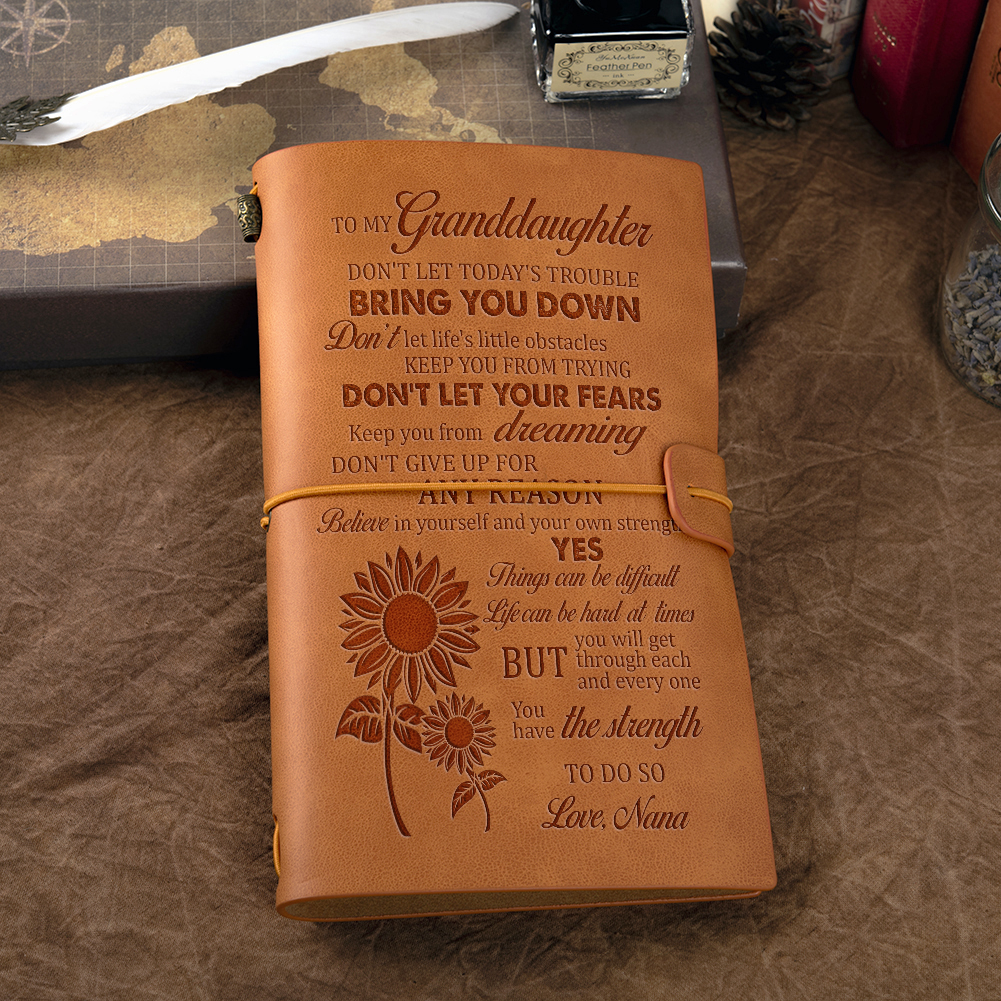 Feather Pen
ink
TO MY Granddaughter
DON'T LET TODAY'S TROUBLE
BRING YOU DOWN
Don't let life's little obstacles
KEEP YOU FROM TRYING
DON'T LET YOUR FEARS
Keep you from dreaming
DON'T GIVE UP FOR
ANY REASON
Believe in yourself and your own strengt
YES
Things can be difficult
Life can be hard at times
BUT you will get
through each
and every one
You
have the strength
TO DO SO
Love, Nana